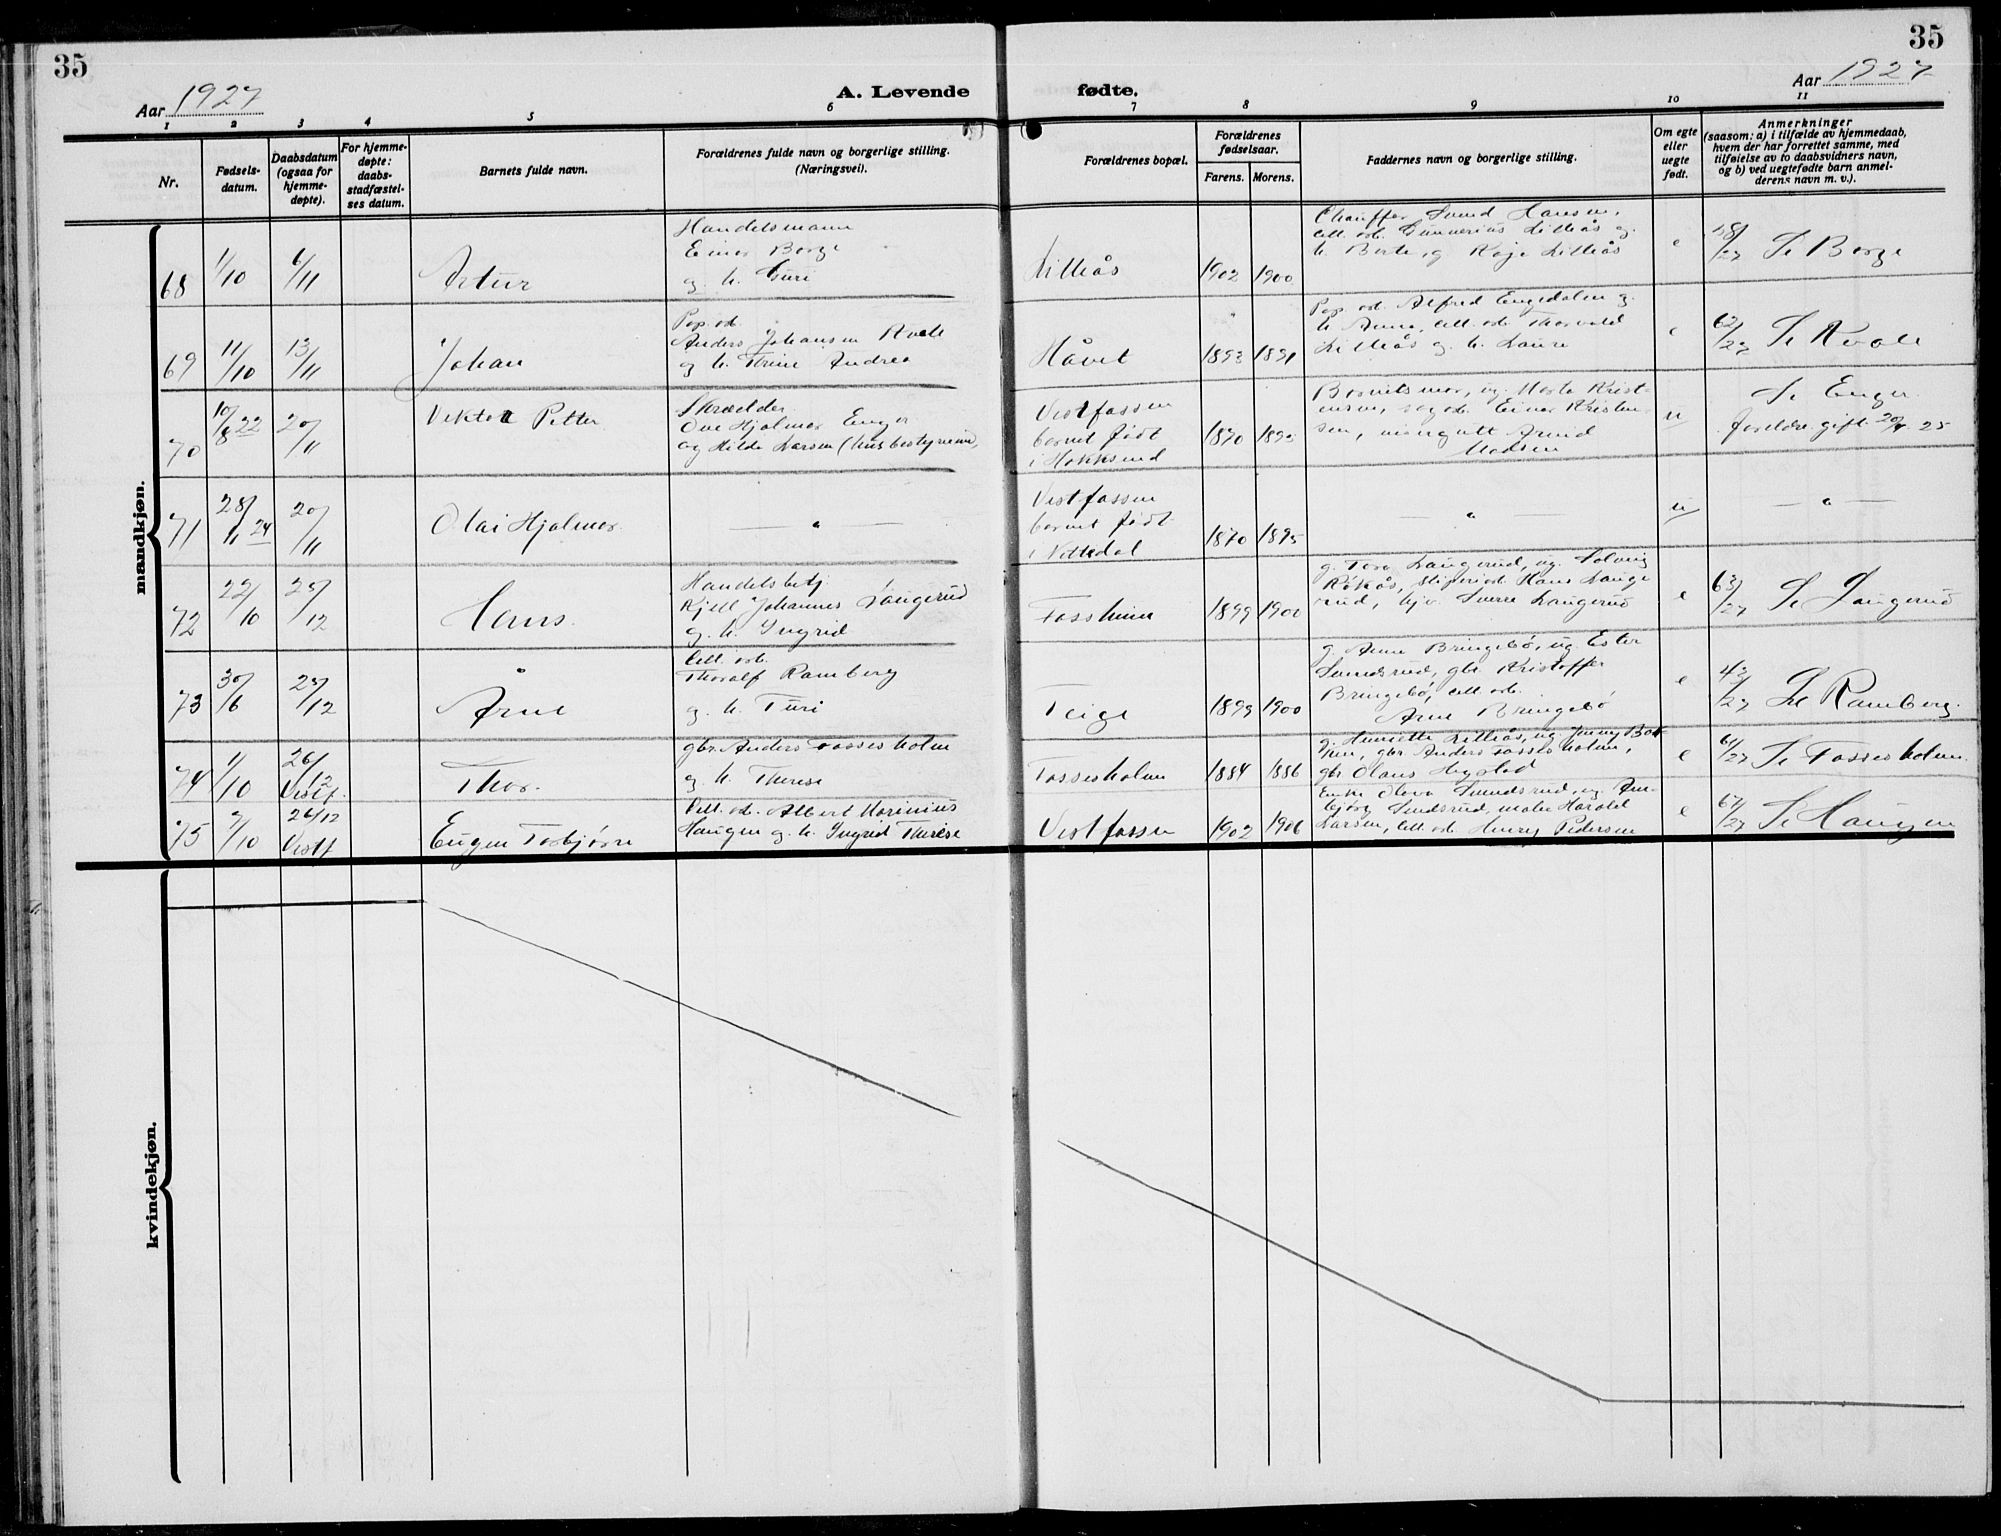 35
35
Aar 1927
A. Levende
fødte.
Aar 1927
1 2 3 4 5 6 7 8 9 10 11
Nr.
Fødsels-
datum.
Daabsdatum
(ogsaa for
hjemme-
døpte).
For hjemme-
døpte:
daabs-
stadfæstel-
ses datum.
Barnets fulde navn.
Forældrenes fulde navn og borgerlige stilling.
(Næringsvei).
Forældrenes bopæl.
Forældrenes
fødselsaar.
Farens. Morens.
Faddernes navn og borgerlige stilling.
Om egte
eller
uegte
født.
Anmerkninger
(saasom: a) i tilfælde av hjemmedaab,
hvem der har forrettet samme, med
tilføielse av to daabsvidners navn,
og b) ved uegtefødte barn anmel-
derens navn m. v.).
mandkjøn.
68
1/10
6/11
Artur
Handelsmann
Einar Borge
og h. Guri
Lilleås
1902 1900
Chauffør Svend Hansen,
cell. arb. Gunnerius Lilleås og
h. Berte, g. Kaja Lilleås
e
58/27 Se Borge
69
11/10
13/11
Johan
Pap. arb.
Anders Johansen Kvale
og h. Trine Andrea
Håvet
1893 1891
Pap. arb. Alfred Engedalen og
h. Anna, cell. arb. Thorvald
Lilleås og h. Laura
e
62/27 Se Kvale
70
10/8 22
20/11
Viktor Petter
Skrædder
Ove Hjalmar Enger
og Hilda Larsen (husbestyrerinne)
Vestfossen
barnet født
i Hokksund
1870 1895
Barnets mor, ug. Marta Krist-
ensen, sagarb. Einar Kristen-
sen, ungutt Arvid
Madsen
u
Se Enger.
foreldre gift 20/4 25
71
28/11 24
20/11
Olai Hjalmar.
— " —
Vestfossen
barnet født
i Nittedal
1870 1895
— " —
u
— " —
72
22/10
25/12
Hans.
Handelsbetj.
Kjell Johannes Langerud
og h. Ingrid
Fossheim
1899 1900
g. Tora Langerud, ug. Solveig
Rökås, sliperiarb. Hans Lange
rud, hjv. Sverre Langerud
e
63/27 Se Langerud
73
30/6
25/12
Arne
Cell. arb.
Thoralf Ramberg
og h. Turi
Teige
1899 1900
g. Anna Bringebö, ug Ester
Sundsrud, gbr. Kristoffer
Bringebö, cell. arb.
Arne Bringebö
e
43/27 Se Ramberg.
74
1/10
26/12
Vestf.
Thor.
gbr. Anders Fossesholm
og h. Therese
Fossesholm
1884 1886
g. Henriette Lilleås, ug Jenny Bak
ken, gbr Anders Fossesholm,
gbr Olaus Hogstad
e
61/27 Se Fossesholm.
75
9/10
26/12
Vestf
Eugen Torbjörn
Cell. arb. Albert Marinius
Haugen og h. Ingrid Therese
Vestfossen
1902 1906
Enke Oleva Sundsrud, ug An-
björg Sundsrud, maler Harald
Larsen, cell. arb. Henry Pedersen
e
67/27 Se Haugen
kvindekjøn.